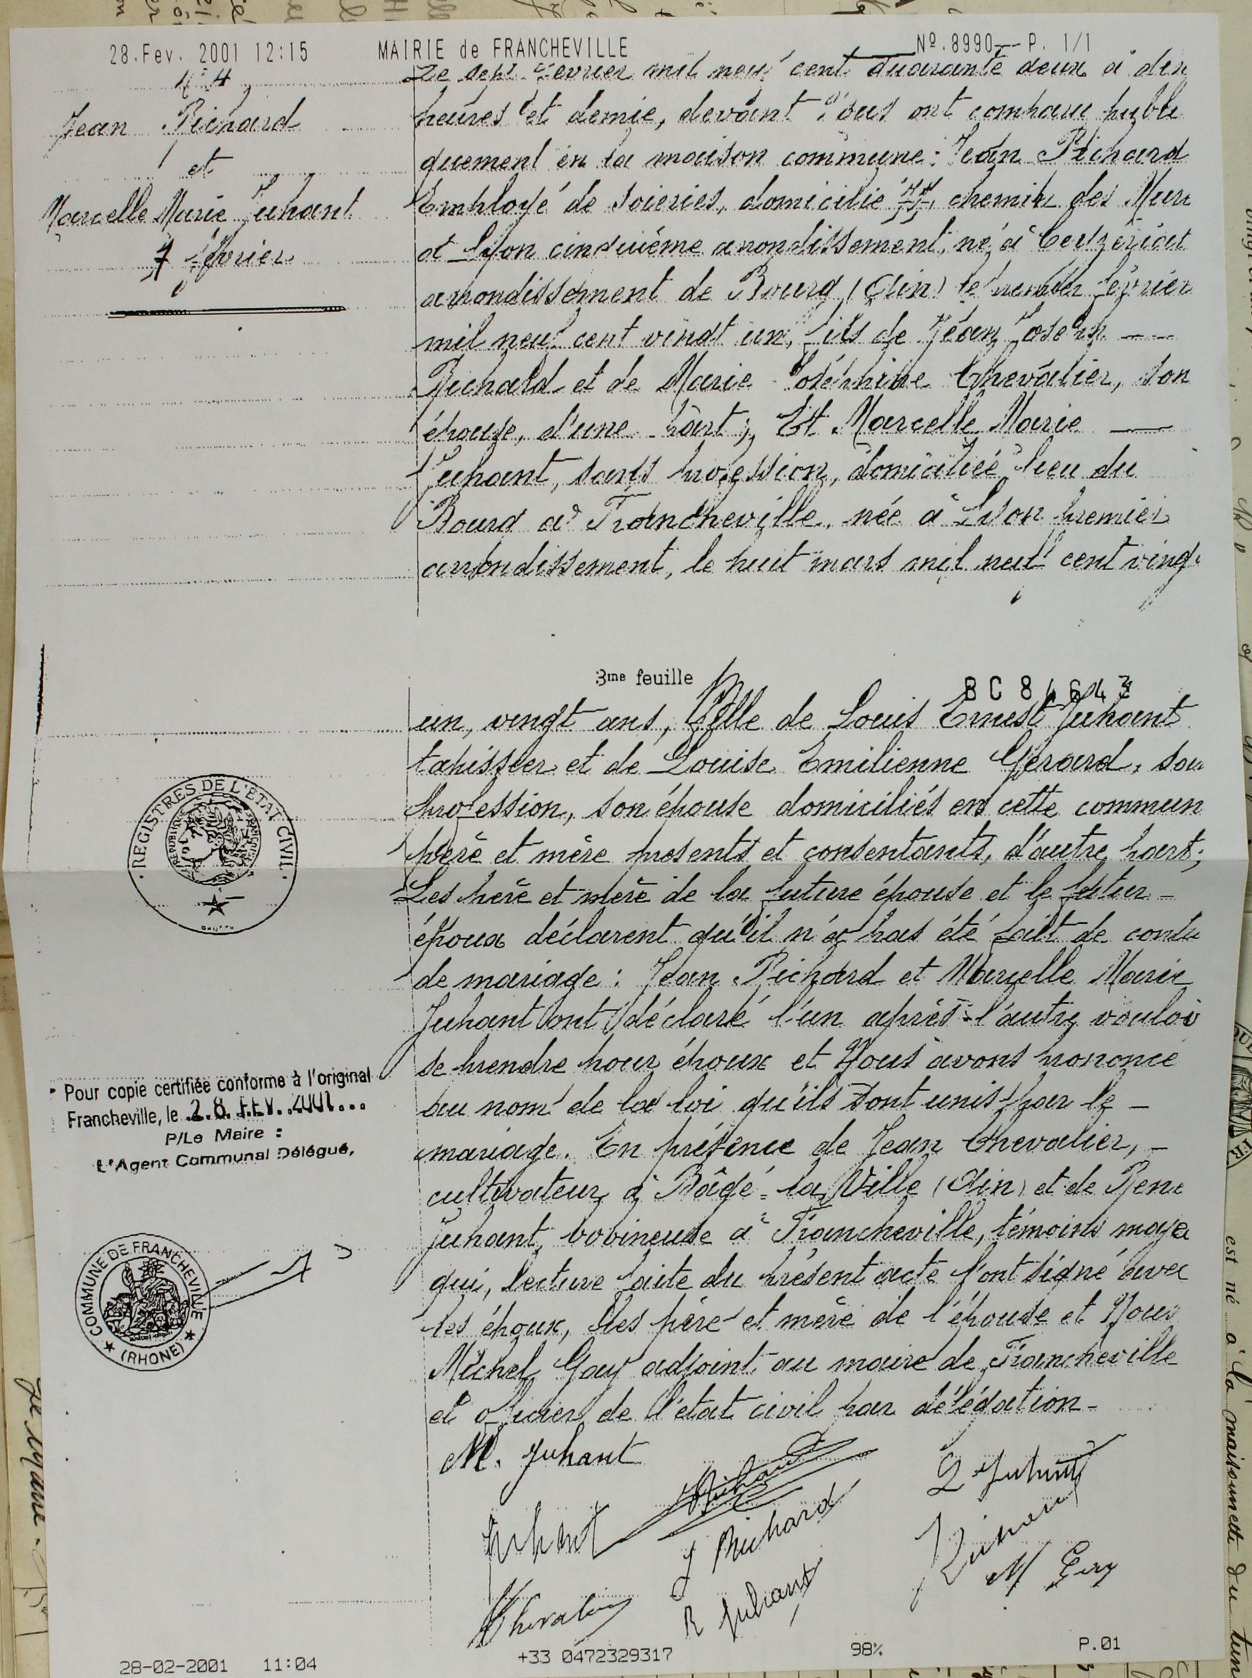 28.Fev. 2001 12:15 MAIRIE de FRANCHEVILLE Nº.8990 P. 1/1
Nº 4
Jean Richard
et
Marcelle Marie Juhant
7 février
Le sept février mil neuf cent quarante deux à dix
heures et demie, devant Nous ont comparu publi
quement en la maison commune: Jean Richard
Employé de soieries, domicilié 75, chemin des
à Lyon cinquième arrondissement, né à Ceyzériat
arrondissement de Bourg (Ain) le premier février
mil neuf cent vingt un, fils de Jean Joseph ——
Richard et de Marie Joséphine Chevalier, son
épouse, d'une part; Et Marcelle Marie ——
Juhant, sans profession, domiciliée lieu du
Bourg à Francheville, née à Lyon premier
arrondissement, le huit mars mil neuf cent vingt
3me feuille
BC 84643
un, vingt ans, fille de Louis Ernest Juhant
tapissier et de Louise Emilienne Gérard, sans
profession, son épouse domiciliés en cette commun
père et mère présents et consentants, d'autre part;
Les père et mère de la future épouse et le futur —
époux déclarent qu'il n'a pas été fait de contr
de mariage: Jean Richard et Marcelle Marie
Juhant ont déclaré l'un après l'autre vouloir
se prendre pour époux et Nous avons prononcé
au nom de la loi qu'ils sont unis par le —
mariage. En présence de Jean Chevalier, —
cultivateur, à Bâgé-la-Ville (Ain) et de René
Juhant, bobineuse à Francheville, témoins maje
qui, lecture faite du présent acte l'ont signé avec
les époux, les père et mère de l'épouse et Nous
Michel Gay adjoint au maire de Francheville
et officier de l'état civil par délégation —
REGISTRES DE L'ETAT CIVIL
Pour copie certifiée conforme à l'original
Francheville, le 28 FEV. 2001
P/Le Maire :
L'Agent Communal Délégué,
COMMUNE DE FRANCHEVILLE
(RHONE)
M. Juhant
Richard
L Juhant
Juhant
J Richard
Richard
Chevalier
R Juhant
M Gay
28-02-2001 11:04 +33 0472329317 98% P.01
est né à la maisonnette du tun